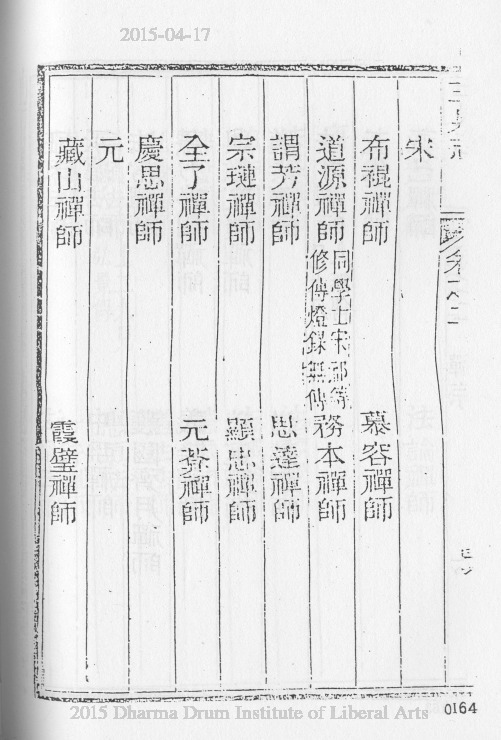 2015-04-17
宋
布裩禪師
慕容禪師
道源禪師
同學士宋
等
修傳燈錄無傳
務本禪師
謂芳禪師
思達禪師
宗璉禪師
顯忠禪師
全了禪師
元菴禪師
慶思禪師
元
藏山禪師
霞璧禪師
0164
2015 Dharma Drum Institute of Liberal Arts